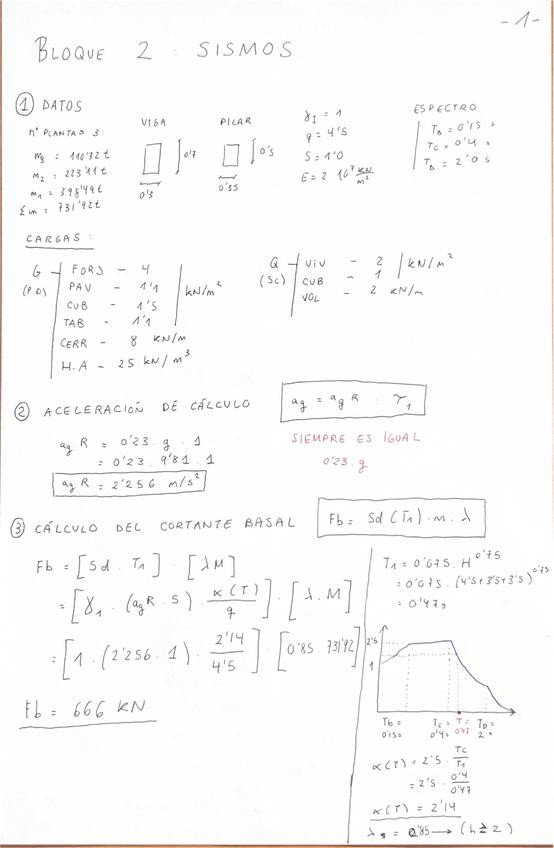 -1-
BLOQUE 2 : SISMOS
① DATOS
nº PLANTAS 3:
m3 = 110'32 t
m2 = 223'11 t
m1 = 398'49 t
Σm = 731'92 t
VIGA
0'7
0'3
PILAR
0'5
0'35
γI = 1
q = 4'5
S = 1'0
E = 2 10⁷ kN/m²
ESPECTRO
TB = 0'15 s
TC = 0'4 s
TD = 2'0 s
CARGAS:
G (P.P)
FORJ - 4
PAV - 1'1
CUB - 1'5
TAB - 1'1
kN/m²
CERR - 8 kN/m
H.A - 25 kN/m³
Q (SC)
VIV - 2
CUB - 1
kN/m²
VOL - 2 kN/m
② ACELERACIÓN DE CÁLCULO
ag = agR · γ1
agR = 0'23 · g · 1
= 0'23 · 9'81 · 1
agR = 2'256 m/s²
SIEMPRE ES IGUAL
0'23 · g
③ CÁLCULO DEL CORTANTE BASAL
Fb = Sd (T1) · m · λ
Fb = [Sd · T1] · [λM]
= [γ1 · (agR · S) · α(T)/q] · [λ · M]
= [1 · (2'256 · 1) · 2'14/4'5] · [0'85 · 731'92]
Fb = 666 KN
T1 = 0'075 · H^0'75
= 0'075 · (4'5+3'5+3'5)^0'75
= 0'47 s
2'5
1
TB = 0'15s
TC = 0'4s
T = 0'47
TD = 2s
α(T) = 2'5 · TC/T1
= 2'5 · 0'4/0'47
α(T) = 2'14